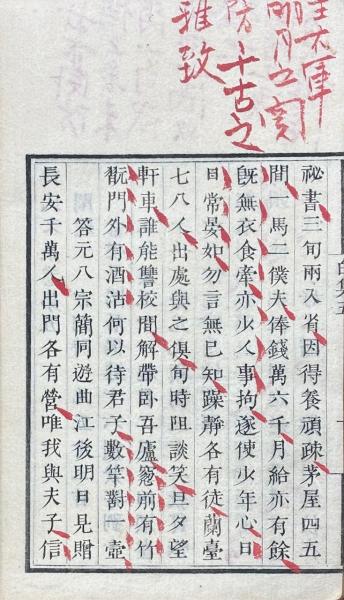 明月入闺
阶千古之
雅致
白集五
祕書三旬兩入省因得養頑疎茅屋四五
間一馬二僕夫俸錢萬六千月給亦有餘
旣無衣食牽亦少人事拘遂使少年心日
日常晏如勿言無已知躁靜各有徒蘭臺
七八人出處與之俱旬時阻談笑旦夕望
軒車誰能讐校間解帶臥吾廬窻前有竹
翫門外有酒沽何以待君子數竿對一壺
答元八宗簡同遊曲江後明日見贈
長安千萬人出門各有營唯我與夫子信